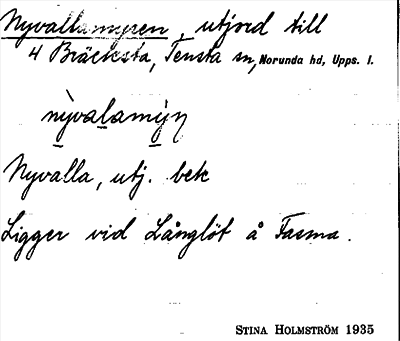 Nyvallamyren, utjord till
4 Bräcksta, Tensta sn, Norunda hd, Upps. l.
nỳvalamỳṇ
Nyvalla, utj. bek
Ligger vid Långlöt å Fasma.
STINA HOLMSTRÖM 1935